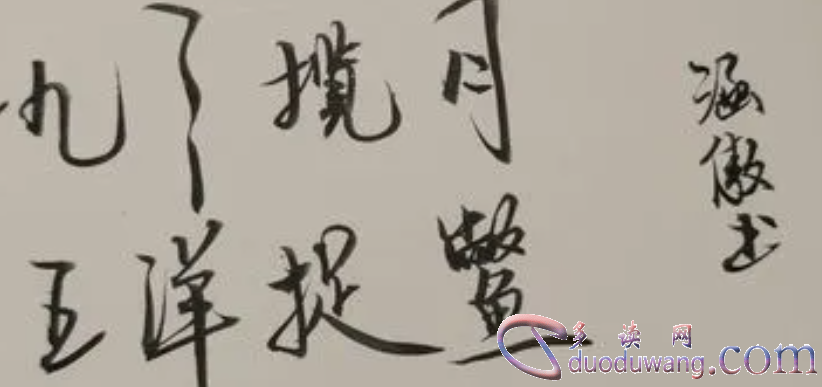 九子揽月
五洋捉鳖
涵傲书
多读网
duoduwang.com